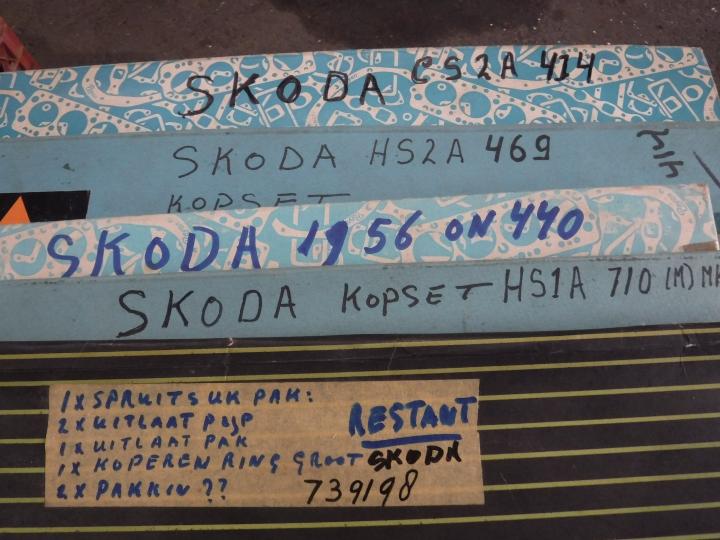 SKODA CS2A 414
SKODA HS2A 469
KOPSET
SKODA 1956 ON 440
SKODA KOPSET HS1A 710 (M)
1X SPRUITSUK PAK:
2X UITLAAT
1X UITLAAT PAK
1X KOPEREN RING GROOT
2X PAKKIN ??
RESTANT
SKODA
739198